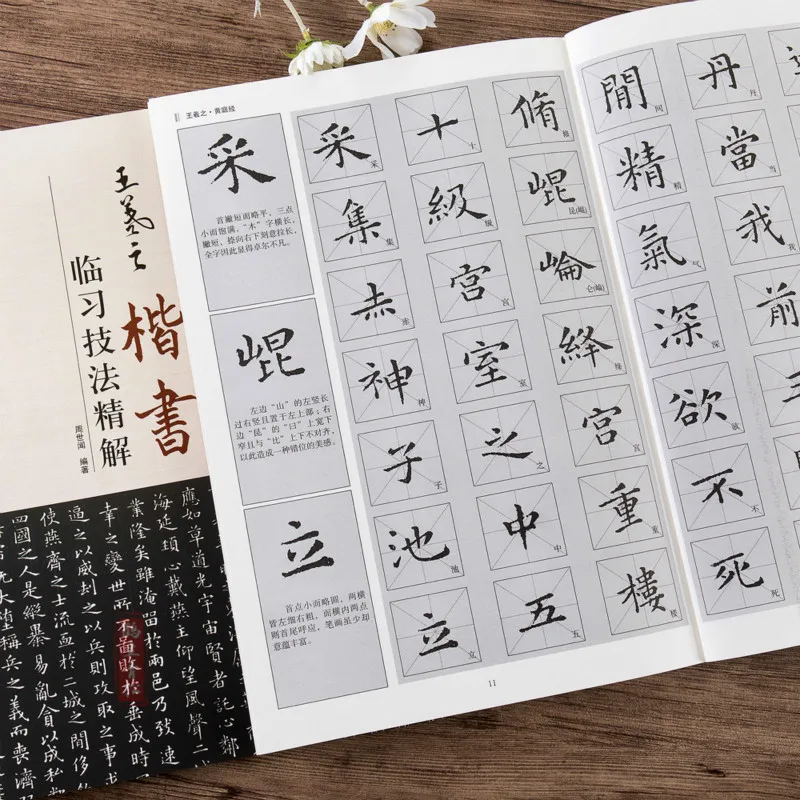 王羲之
楷書
临习技法精解
周世闻 编著
應如草道光宇宙賢者託心鄰
海延頸心戴燕主仰望風聲二
業隆矣雖淹留於兩邑乃致速
幸之變世所不圖敗於垂成時
逼之以威劫之以兵則攻取之事求
使燕齊之士流血於二城之間侈
四國之人是縱暴易亂貪以成私
無大墮稱兵之義而喪濟
王羲之·黄庭经
采
首撇短而略平,三点
小而饱满,“木”字横长,
撇短,捺向右下刻意拉长,
全字因此显得卓尔不凡。
崐
左边“山”的左竖长
过右竖且置于左上部;右
边“昆”的“曰”上宽下
窄且与“比”上下不对齐,
以此造成一种错位的美感。
立
首点小而略圆,两横
皆左细右粗,面横内两点
则首尾呼应,笔画虽少却
意蕴丰富。
脩 修
崐 昆(崐)
崘 仑(崘)
絳 绛
宮 宫
重 重
樓 楼
十 十
級 级
宮 宫
室 室
之 之
中 中
五 五
采 采
集 集
赤 赤
神 神
子 子
池 池
立 立
11
間 间
精 精
氣 气
深 深
欲 欲
不 不
死 死
丹 丹
當 当
我 我
前